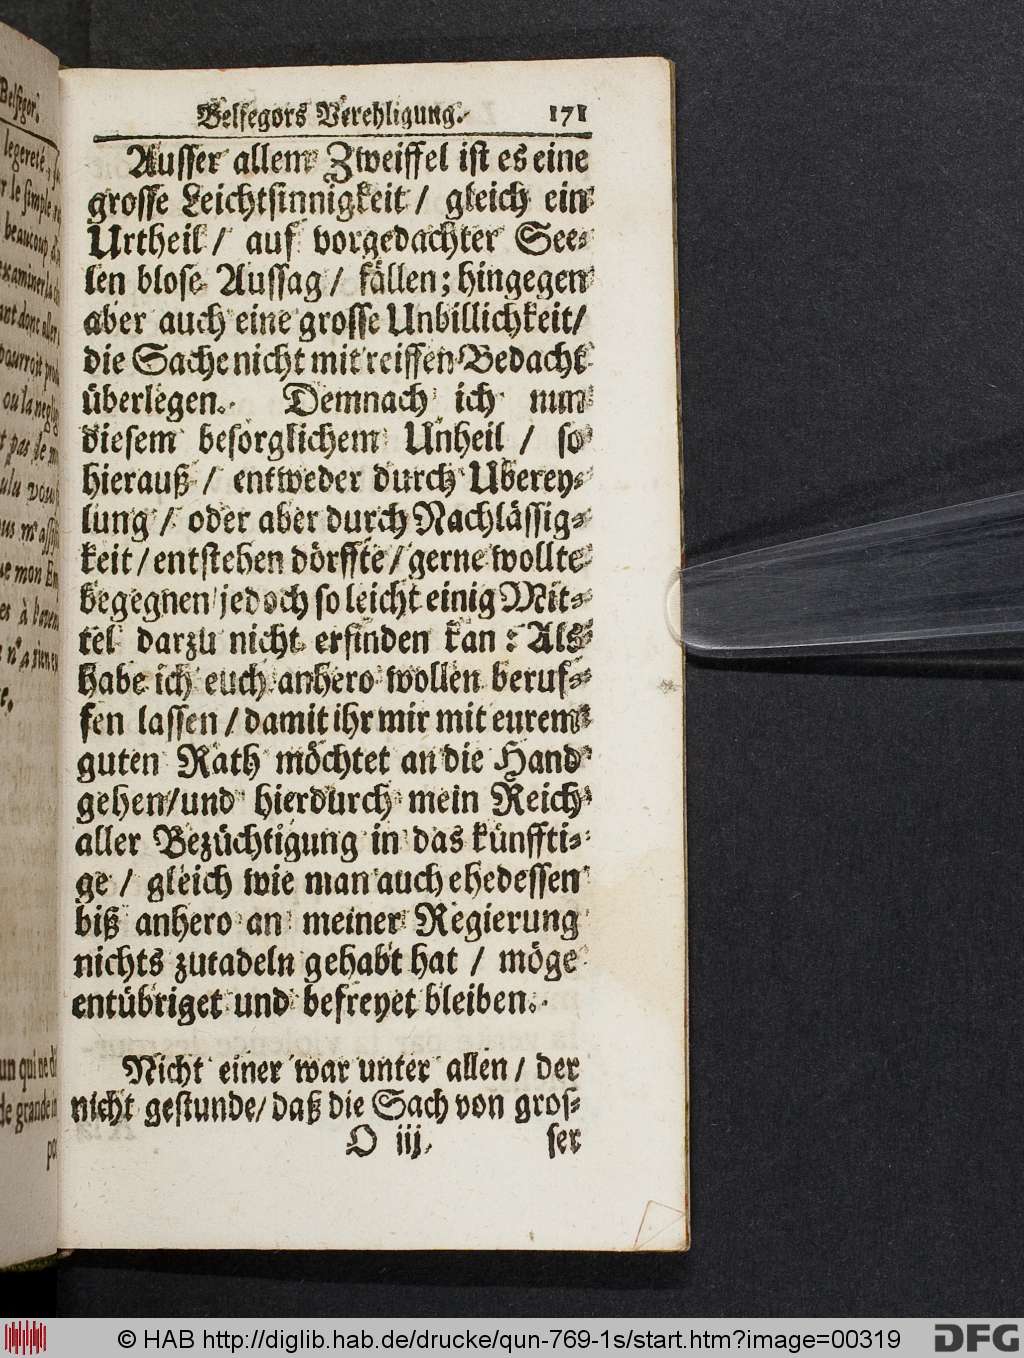 Belfegors Verehligung. 171
Ausser allem Zweiffel ist es eine
grosse Leichtsinnigkeit / gleich ein
Urtheil / auf vorgedachter See-
len blose Aussag / fällen; hingegen
aber auch eine grosse Unbillichkeit /
die Sache nicht mit reiffen Bedacht
überlegen. Demnach ich nun
diesem besorglichem Unheil / so
hierauß / entweder durch Uberey-
lung / oder aber durch Nachlässig-
keit / entstehen dörffte / gerne wollte
begegnen jedoch so leicht einig Mit-
tel darzu nicht erfinden kan: Als
habe ich euch anhero wollen beruf-
fen lassen / damit ihr mir mit eurem
guten Rath möchtet an die Hand
gehen / und hierdurch mein Reich
aller Bezüchtigung in das künffti-
ge / gleich wie man auch ehedessen
biß anhero an meiner Regierung
nichts zutadeln gehabt hat / möge
entübriget und befreyet bleiben.
Nicht einer war unter allen / der
nicht gestunde / daß die Sach von gros-
O iij ser
Belfegor.
legereté,
le simple
beaucoup
examiner la
ant donc aller
pourroit
ou la
pas de
vous
mon
à
n'a rien
un qui ne
de grande
© HAB http://diglib.hab.de/drucke/qun-769-1s/start.htm?image=00319
DFG